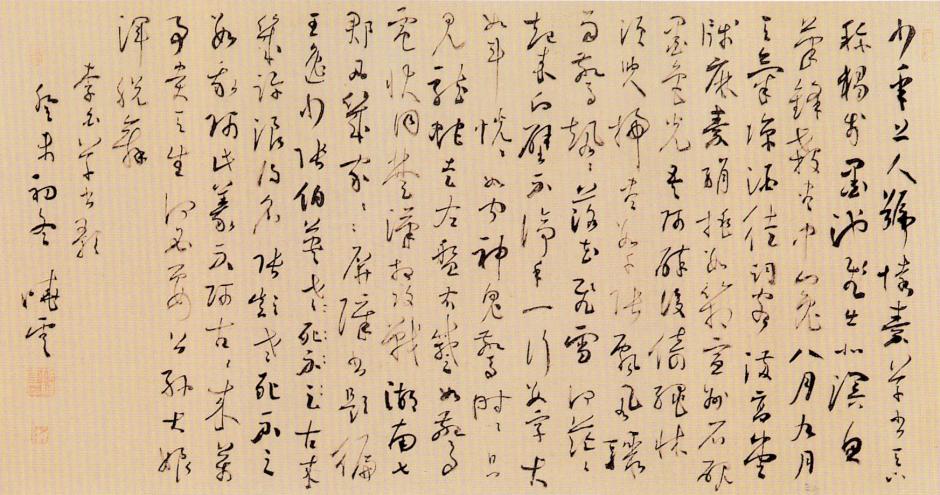 少年上人號懷素草書天下
稱獨步墨池飛出北溟魚
筆鋒殺盡中山兔八月九月
天氣涼酒徒詞客滿高堂
牋麻素絹排數箱宣州石硯
墨色光吾師醉後倚繩床
須臾掃盡數千張飄風驟
雨驚颯々落花飛雪何茫々
起來向壁不停手一行數字大
如斗怳々如聞神鬼驚時々只
見龍蛇走左盤右蹙如驚
電狀同楚漢相攻戰湖南七
郡凡幾家家々屏障書題徧
王逸少張伯英老死不足古來
幾許浪得名張顛老死不足
數我師此義不師古古來萬
事貴天生何必要公孫大娘
渾脫舞
李白草書歌
癸未初冬 曉雲